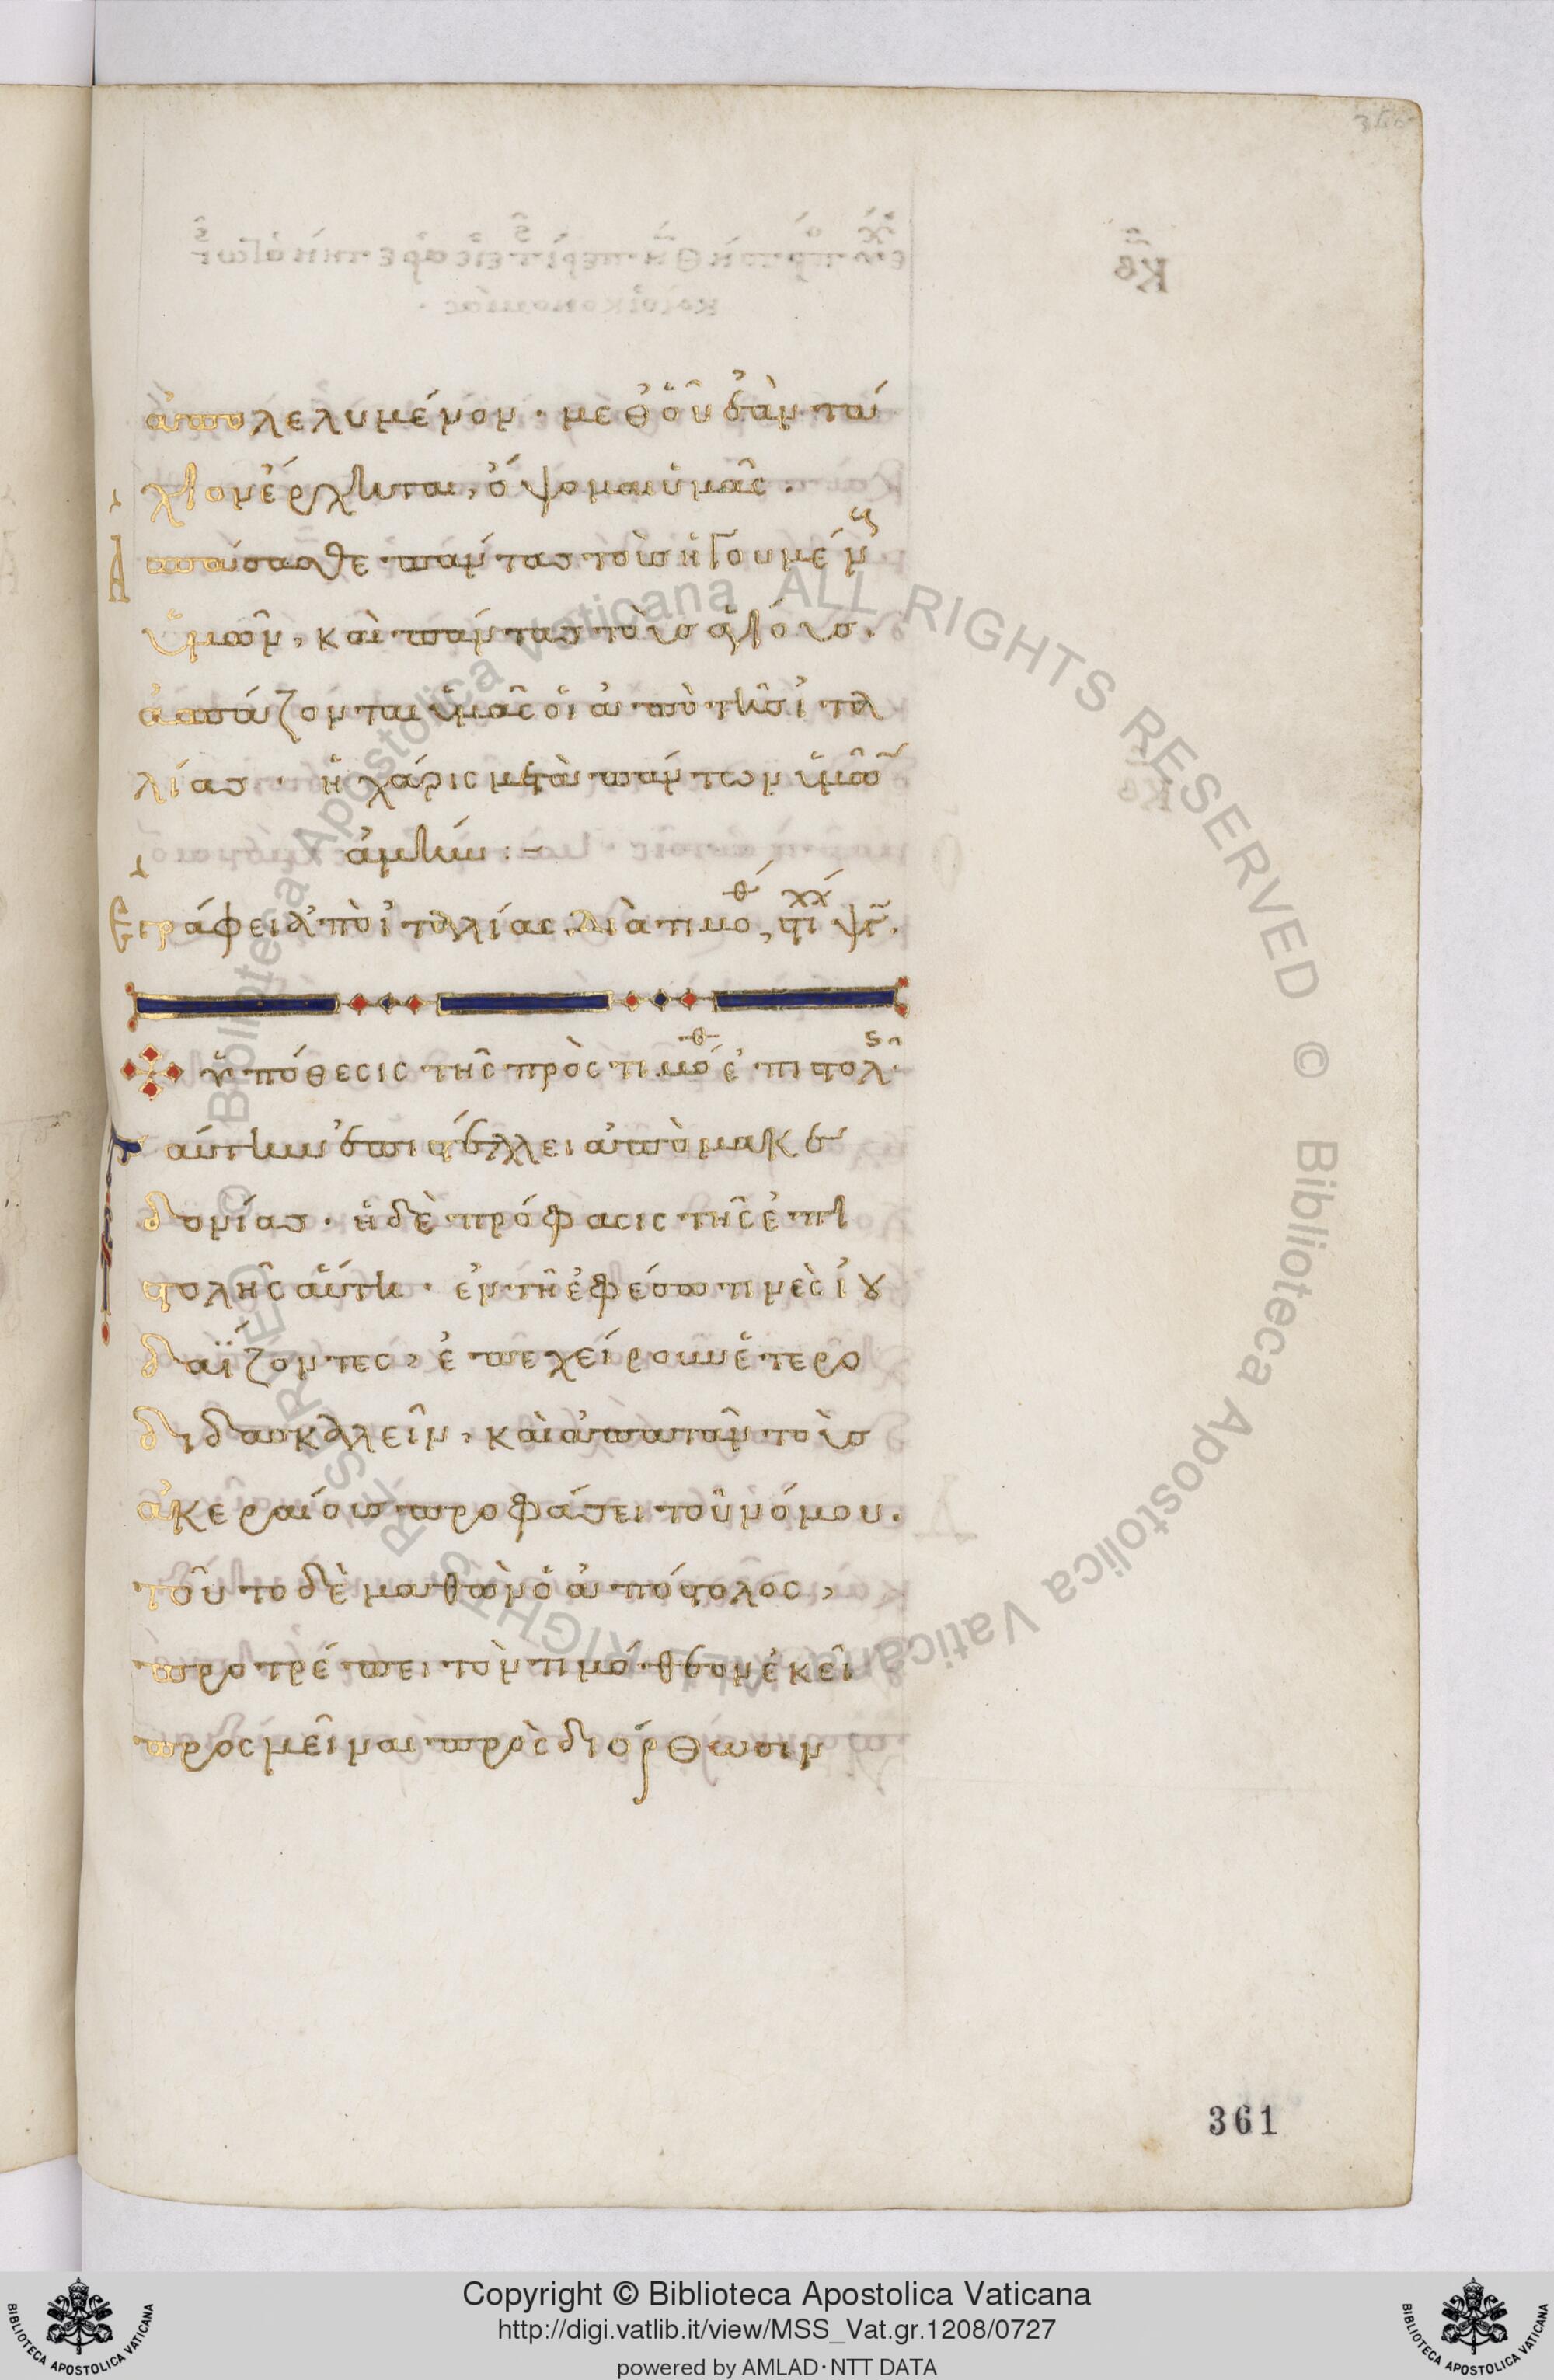 ἀπολελυμένον· μεθ' οὗ ἐὰν τά
χιον ἔρχηται, ὄψομαι ὑμᾶς.
Ἀσπάσασθε πάντας τοὺς ἡγουμέν
ὑμῶν, καὶ πάντας τοὺς ἁγίους.
ἀσπάζονται ὑμᾶς οἱ ἀπὸ τῆς ἰτα
λίας· ἡ χάρις μετὰ πάντων ὑμῶ
ἀμήν:-
Εγράφει ἀπὸ ἰταλίας διὰ τιμοθ, στι ψγ.
ὑπόθεσις τῆς πρὸς τιμόθ ἐπιστολ
Ταύτην ἐπιστέλλει ἀπὸ μακε
δονίας· ἡ δὲ πρόφασις τῆς ἐπι
στολῆς αὕτη· ἐν τῇ ἐφέσω τινὲς ἰου
δαΐζοντες, ἐπεχείρουν ἑτερο
διδασκαλεῖν, καὶ ἀπατᾶν τοὺς
ἀκεραίους προφάσει τοῦ νόμου.
τοῦτο δὲ μαθὼν ὁ ἀπόστολος,
προτρέπει τὸν τιμόθεον ἐκεῖ
προςμεῖναι πρὸς διόρθωσιν
361
© Biblioteca Apostolica Vaticana ALL RIGHTS RESERVED © Biblioteca Apostolica Vaticana ALL RIGHTS RESERVED
Copyright © Biblioteca Apostolica Vaticana
http://digi.vatlib.it/view/MSS_Vat.gr.1208/0727
powered by AMLAD·NTT DATA
BIBLIOTECA APOSTOLICA VATICANA
BIBLIOTECA APOSTOLICA VATICANA